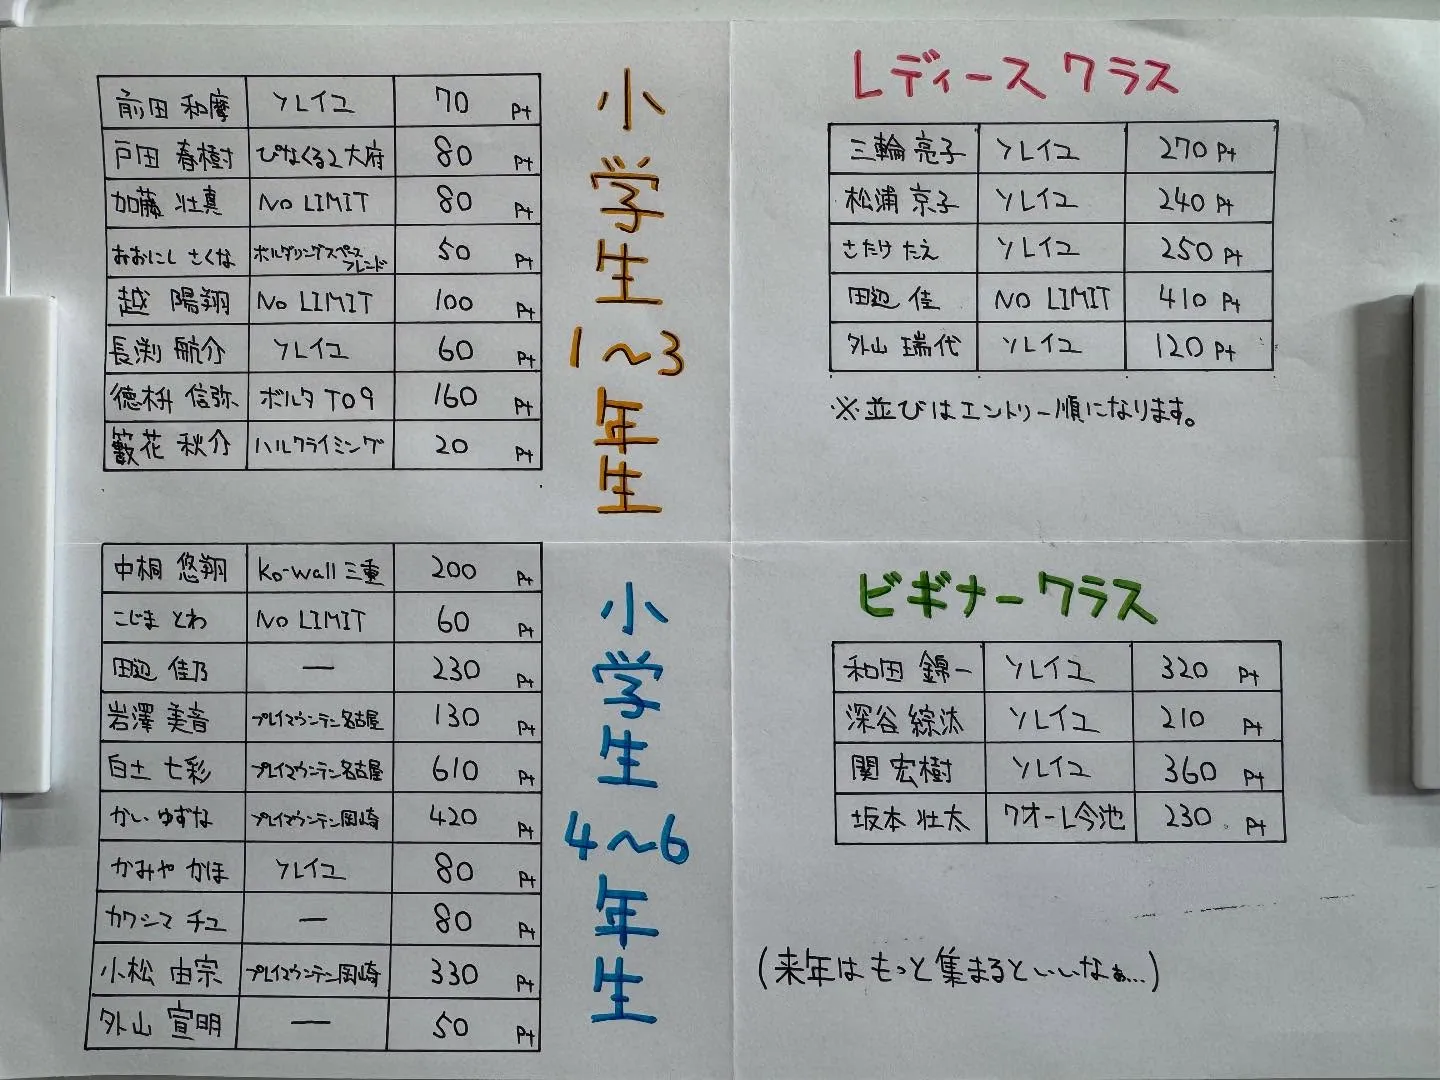 小学生1～3年生
前田 和摩 ソレイユ 70 Pt
戸田 春樹 ぴなくる2大府 80 Pt
加藤 壮真 NO LIMIT 80 Pt
おおにし さくな ボルダリングスペースフレンド 50 Pt
越 陽翔 NO LIMIT 100 Pt
長渕 航介 ソレイユ 60 Pt
徳桝 信弥 ボルダ TO9 160 Pt
籔花 秋介 ハルクライミング 20 Pt
小学生4～6年生
中桐 悠翔 Ko-wall 三重 200 Pt
こじま とわ NO LIMIT 60 Pt
田辺 佳乃 ― 230 Pt
岩澤 美音 プレイマウンテン名古屋 130 Pt
白土 七彩 プレイマウンテン名古屋 610 Pt
かい ゆずな プレイマウンテン岡崎 420 Pt
かみや かほ ソレイユ 80 Pt
カワシマ チユ ― 80 Pt
小松 由宗 プレイマウンテン岡崎 330 Pt
外山 宣明 ― 50 Pt
レディースクラス
三輪 亮子 ソレイユ 270 Pt
松浦 京子 ソレイユ 240 Pt
さたけ たえ ソレイユ 250 Pt
田辺 佳 NO LIMIT 410 Pt
外山 瑞代 ソレイユ 120 Pt
※並びはエントリー順になります。
ビギナークラス
和田 錦一 ソレイユ 320 Pt
深谷 綜汰 ソレイユ 210 Pt
関 宏樹 ソレイユ 360 Pt
坂本 壮太 クオーレ今池 230 Pt
(来年はもっと集まるといいなぁ…)